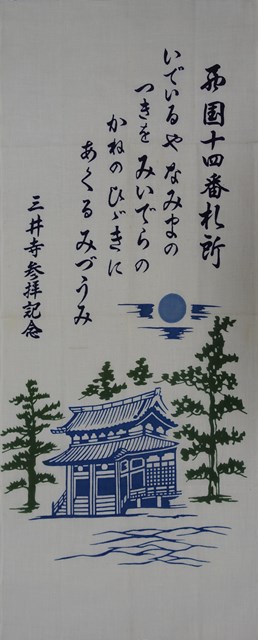 西国十四番札所
いでいるやなみまの
つきをみいでらの
かねのひゞきに
あくるみづうみ
三井寺参拝記念